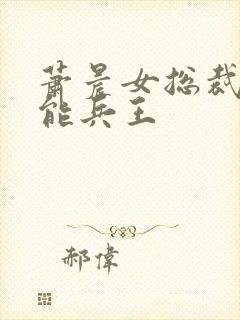 萧晨女总裁
能兵王
郝偉